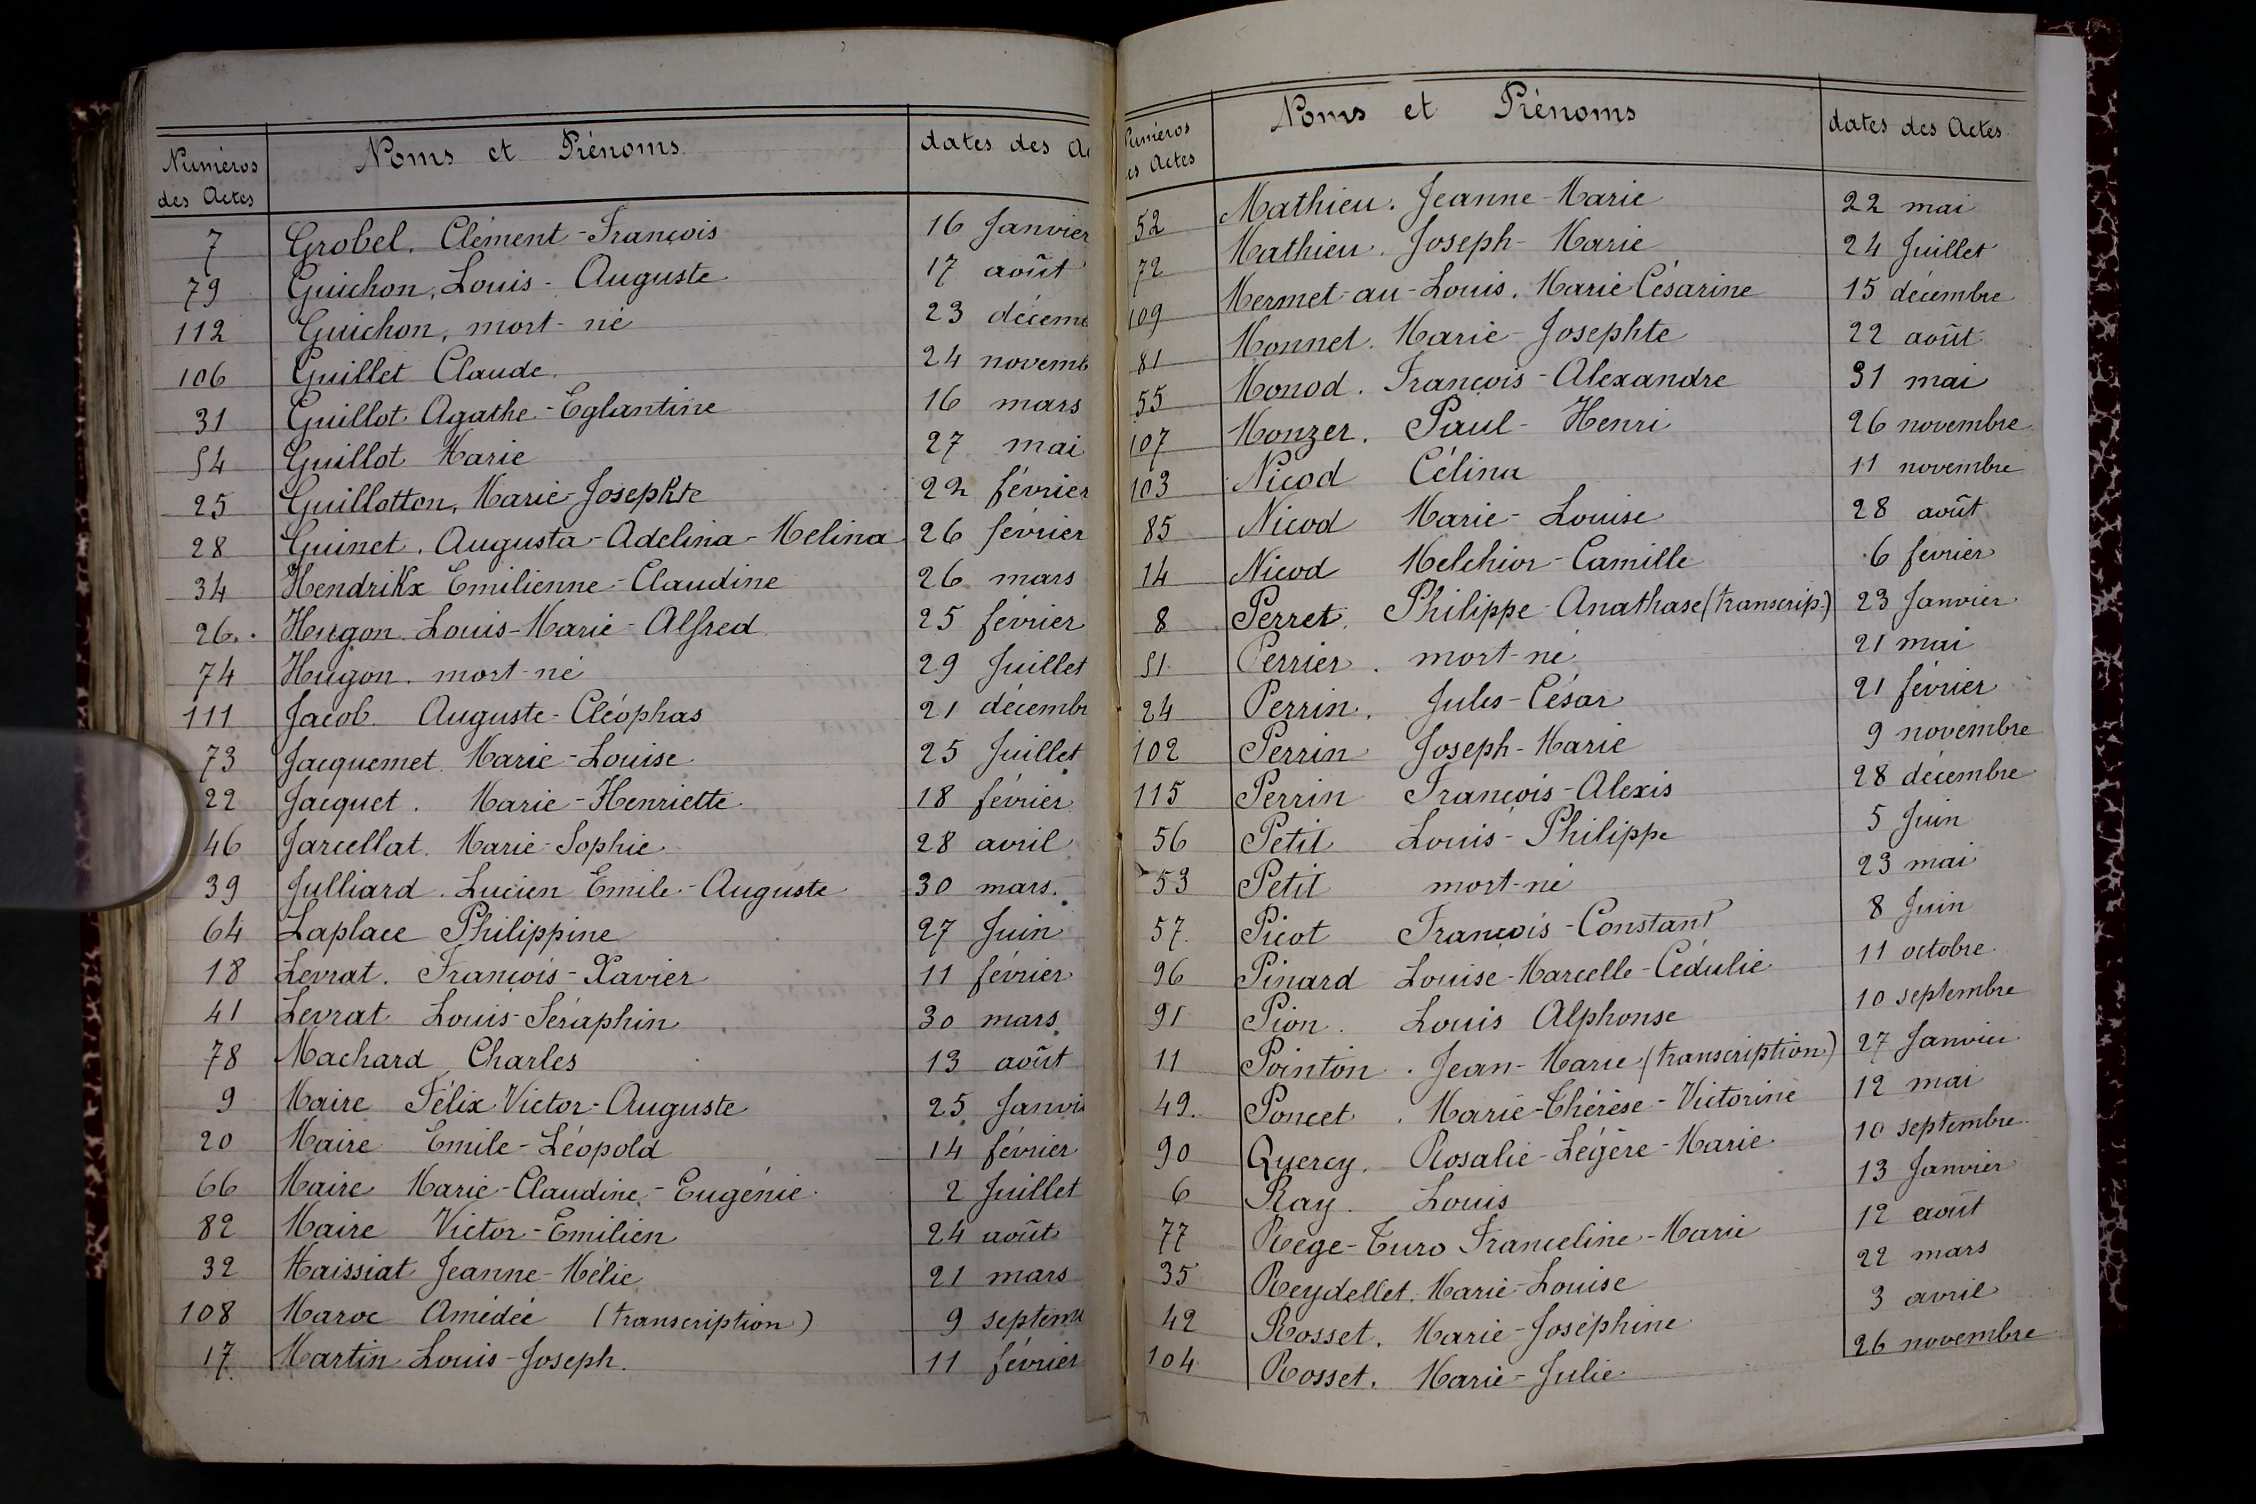 Numéros des Actes | Noms et Prénoms | dates des Ac
7 Grobel. Clément-François 16 Janvier
79 Guichon, Louis-Auguste 17 août
112 Guichon, mort-né 23 décem
106 Guillet Claude. 24 novemb
31 Guillot Agathe-Eglantine 16 mars
54 Guillot Marie 27 mai
25 Guillotton, Marie-Josephte 22 février
28 Guinet. Augusta-Adelina-Melina 26 février
34 Hendrikx Emilienne-Claudine 26 mars
26. Hugon Louis-Marie-Alfred 25 février
74 Hugon. mort-né 29 Juillet
111 Jacob Auguste-Cléophas 21 décembr
73 Jacquemet Marie-Louise 25 Juillet
22 Jacquet. Marie-Henriette 18 février
46 Jarcellat. Marie-Sophie 28 avril
39 Julliard. Lucien Emile-Auguste 30 mars.
64 Laplace Philippine 27 Juin
18 Levrat. François-Xavier 11 février
41 Levrat Louis-Séraphin 30 mars
78 Machard Charles 13 août
9 Maire Félix Victor-Auguste 25 Janvi
20 Maire Emile-Léopold 14 février
66 Maire Marie-Claudine-Eugénie 2 Juillet
82 Maire Victor-Emilien 24 août
32 Maissiat Jeanne-Mélie 21 mars
108 Maroc Amédée (transcription) 9 septem
17 Martin Louis-Joseph. 11 février
Numéros des Actes | Noms et Prénoms | dates des Actes
52 Mathieu. Jeanne-Marie 22 mai
72 Mathieu. Joseph-Marie 24 Juillet
109 Mermet-au-Louis. Marie Césarine 15 décembre
81 Monnet. Marie-Josephte 22 août
55 Monod. François-Alexandre 31 mai
107 Monzer. Paul-Henri 26 novembre
103 Nicod Célina 11 novembre
85 Nicod Marie-Louise 28 août
14 Nicod Melchior-Camille 6 février
8 Perret. Philippe-Anathase (transcrip.) 23 Janvier
51 Perrier. mort-né 21 mai
24 Perrin. Jules-César 21 février
102 Perrin Joseph-Marie 9 novembre
115 Perrin François-Alexis 28 décembre
56 Petit Louis-Philippe 5 Juin
53 Petit mort-né 23 mai
57. Picot François-Constant 8 Juin
96 Pinard Louise-Marcelle-Cédulie 11 octobre
91 Pion. Louis Alphonse 10 septembre
11 Pointon. Jean-Marie (transcription) 27 Janvier
49. Poncet. Marie-Thérèse-Victorine 12 mai
90 Quercy. Rosalie-Légère-Marie 10 septembre
6 Ray. Louis 13 Janvier
77 Rege-Turo Franceline-Marie 12 août
35 Reydellet. Marie-Louise 22 mars
42 Rosset. Marie-Joséphine 3 avril
104 Rosset. Marie-Julie 26 novembre